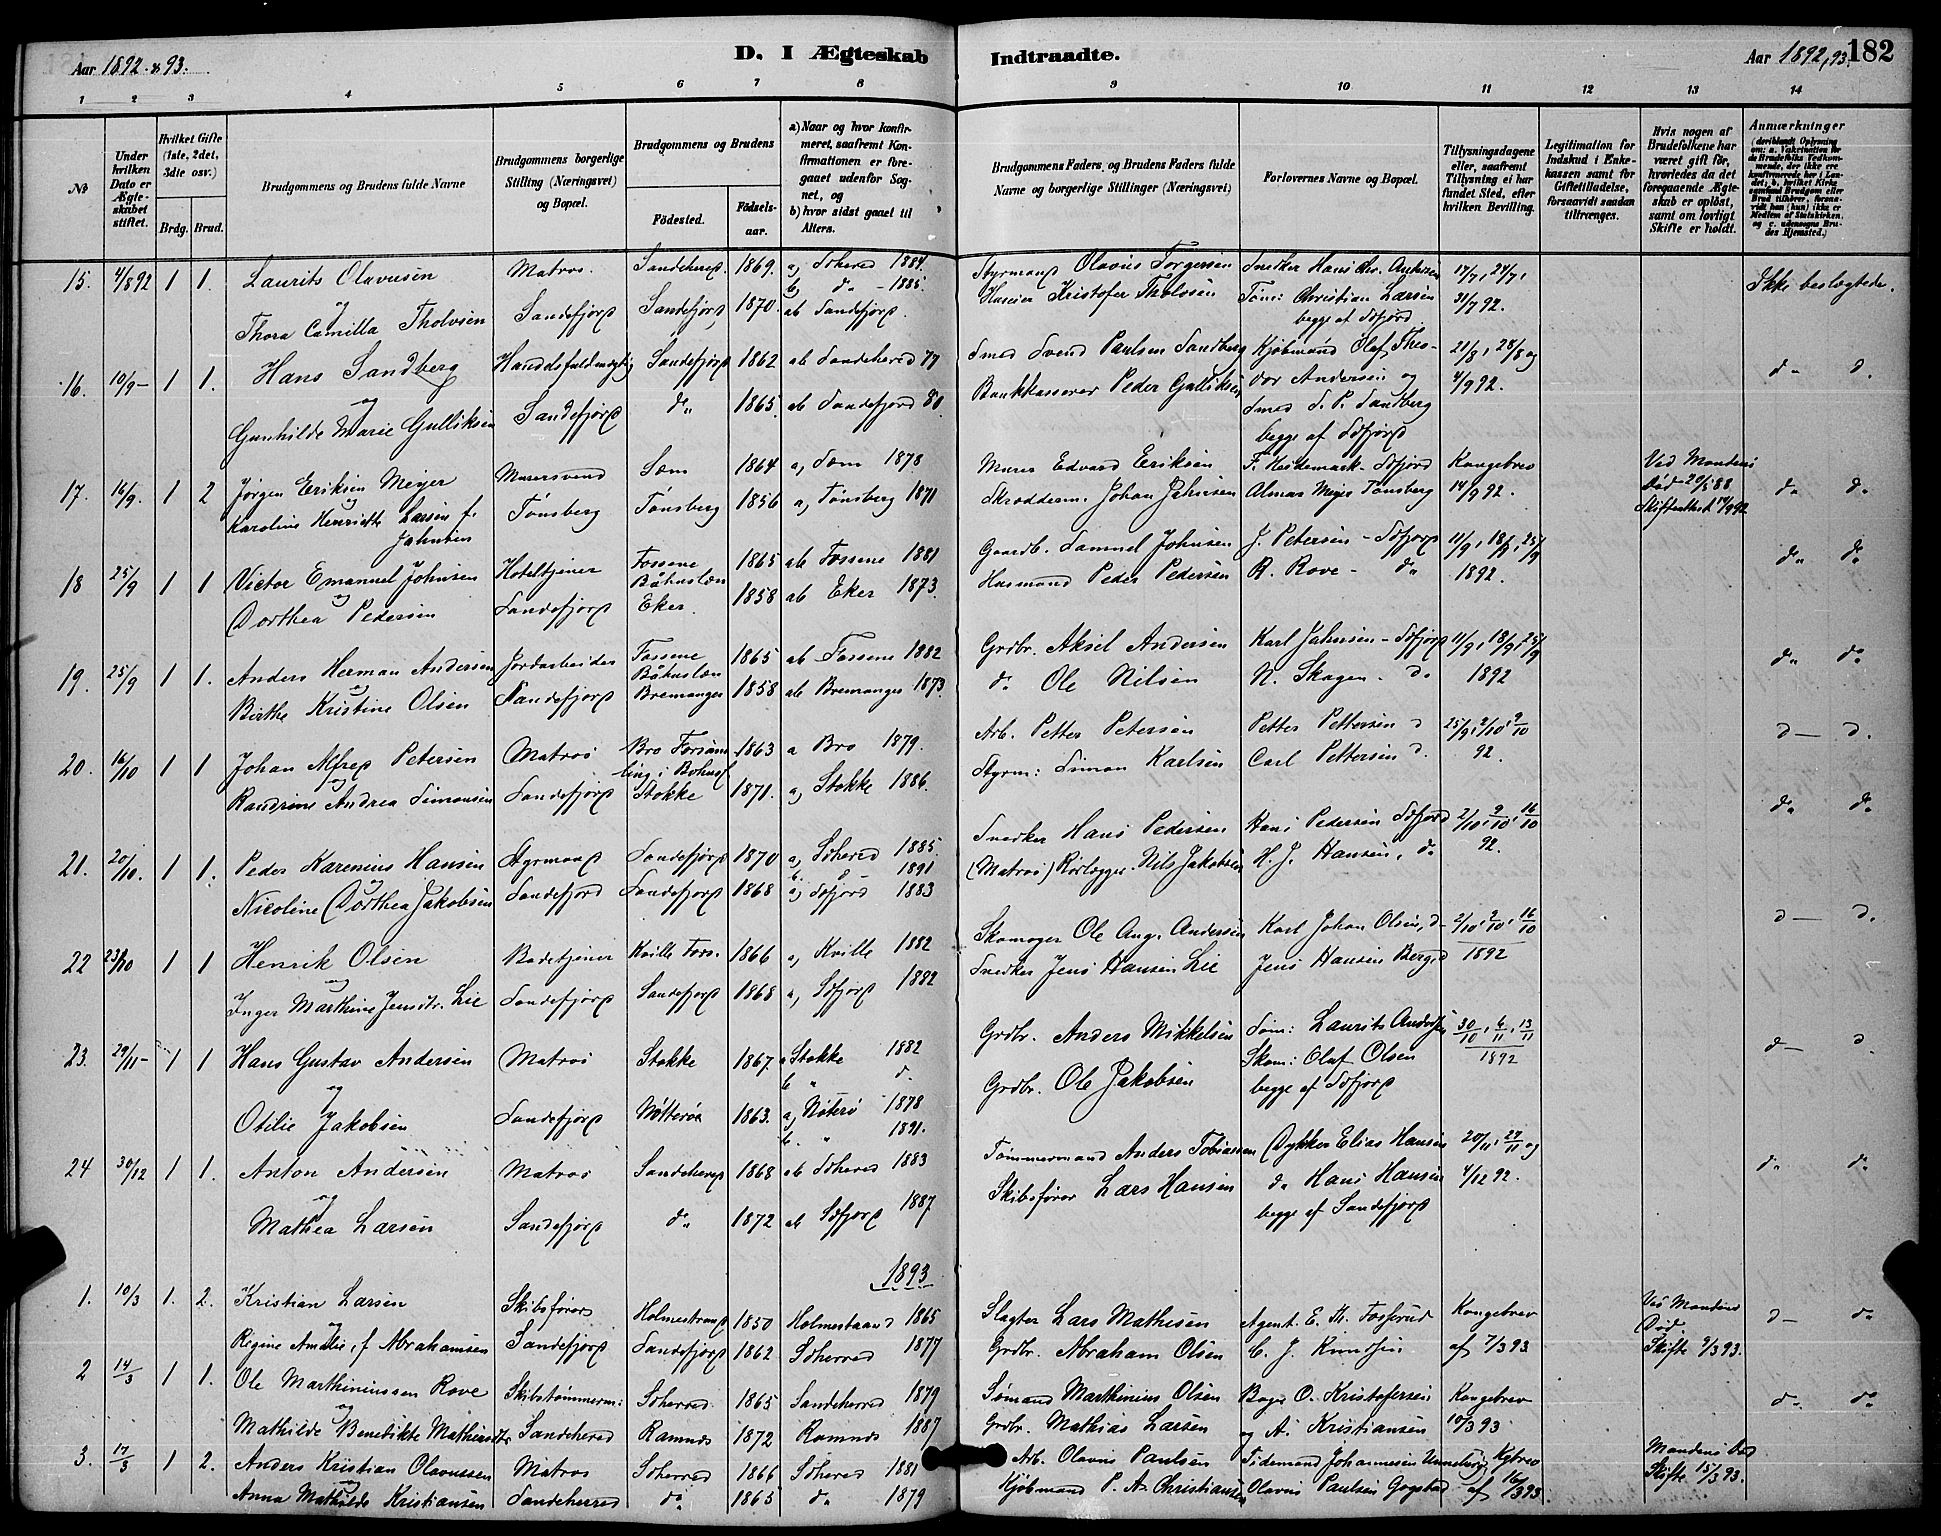 Aar 1892 & 93. D. I Ægteskab Indtraadte. Aar 1892, 93. 182
1 2 3 4 5 6 7 8 9 10 11 12 13 14
No
Under hvilken Dato er Ægteskabet stiftet.
Hvilket Gifte (1ste, 2det, 3die osv.)
Brdg. Brud.
Brudgommens og Brudens fulde Navne
Brudgommens borgerlige Stilling (Næringsvei) og Bopæl.
Brudgommens og Brudens
Fødested. Fødselsaar.
a) Naar og hvor konfirmeret, saafremt Konfirmationen er foregaaet udenfor Sognet, og
b) hvor sidst gaaet til Alters.
Brudgommens Faders og Brudens Faders fulde Navne og borgerlige Stillinger (Næringsvei)
Forlovernes Navne og Bopæl.
Tillysningsdagene eller, saafremt Tillysning ei har fundet Sted, efter hvilken Bevilling.
Legitimation for Indskud i Enkekassen samt for Giftetilladelse, forsaavidt saadan tiltrænges.
Hvis nogen af Brudefolkene har været gift før, hvorledes da det foregaaende Ægteskab er opløst, samt om lovligt Skifte er holdt.
Anmærkninger
15. 4/8 92 1 1. Laurits Olavusen Matros. Sandeherred. 1869. a) Sdherred 1884. Styrmand Olavus Torgersen Snedker Hans Chr. Andersen 17/7, 24/7, Ikke beslægtede.
og b) do - 1885. Huseier Kristofer Tholvsen Tøm: Christian Larsen 31/7 92.
Thora Camilla Tholvsen Sandefjord Sandefjord, 1870. ab Sandefjord. begge af Sdfjord
16. 10/9- 1 1. Hans Sandberg Handelsfuldmægtig Sandefjord 1862 ab Sandeherred 77 Smed Svend Paulsen Sandberg Kjøbmand Olaf Theo- 21/8, 28/8 og do do.
og Bankkasserer Peder Gulliksen dor Andersen og 4/9 92.
Gunhilde Marie Gulliksen Sandefjord do 1865. ab Sandefjord 80. Smed S. P. Sandberg
begge af Sdfjord
17. 16/9. 1 2 Jørgen Eriksen Meyer Murersvend Sem 1864 a) Sem 1878 Murer Edvard Eriksen F. Heidemark - Sdfjord Kongebrev Ved Mandens
og Død 20/5 88 do do.
Karoline Henriette Larsen f. Jahnsen Tønsberg Tønsberg 1856 a) Tønsberg 1871 Skrædderm. Johan Jahnsen Almar Meyer Tønsberg 14/9 92. Skifteattest 14/9 92
18 25/9 1 1 Victor Emanuel Johnsen Hoteltjener Fossene Båhuslæn 1865 ab Fossene 1881 Gaardb. Samuel Johnsen J. Petersen - Sdfjord 11/9, 18/9, 25/9 do do
og
Dorthea Pedersen Sandefjord Eker. 1858 ab Eker 1873. Husmand Peder Pedersen R. Rove - do 1892.
19. 25/9 1 1. Anders Herman Andersen Jordarbeider Fossene Båhuslæn 1865 ab Fossene 1882 Grdbr. Aksel Andersen Karl Jahnsen - Sdfjord 11/9, 18/9, 25/9 do do
og
Birthe Kristine Olsen Sandefjord Bremanger 1858 ab Bremanger 1873. do Ole Nilsen N. Skagen - do 1892
20. 16/10 1 1 Johan Alfred Petersen Matros Bro Forsam- ling i Bohusl 1863 a Bro 1879. Arb. Petter Petersen Petter Pettersen d 25/9, 2/10, 9/10 d — d.
og
Randine Andrea Simonsen Sandefjord Stokke 1871. a) Stokke 1886. Styrm: Simon Karlsen Carl Pettersen d. 92.
21. 20/10. 1 1. Peder Karenius Hansen Styrmand Sandefjord 1870 a) Sdherred 1885. Snedker Hans Pedersen Hans Pedersen Sdfjord 2/10, 9/10, 16/10 do do
og b. d 1891
Nicoline Dorthea Jakobsen Sandefjord Sandefjord 1868 a) Sdfjord 1883 (Matros) Rørlægger Nils Jakobsen H. J. Hansen, do 92.
22 23/10 1 1 Henrik Olsen Badetjener Kville Fors. 1866 a) Kville 1882 Skomager Ole Aug. Andersen Karl Johan Olsen, d- 2/10, 9/10, 16/10 d — d.
og
Inger Marthine Jensdtr. Lie Sandefjord Sandefjord 1868 a) Sdfjord 1882 Snedker Jens Hansen Lie Jens Hansen Berg d 1892
23. 29/11- 1 1 Hans Gustav Andersen Matros Stokke 1867. a Stokke 1882 Grdbr. Anders Mikkelsen Tøm: Laurits Andersen 30/10, 6/11, 13/11 d — d.
og b " d. Skom: Olaf Olsen 1892
Otilie Jakobsen Sandefjord Nøtterø 1863. a) Nøterø 1878 Grdbr. Ole Jakobsen begge af Sdfjord
b. " 1891.
24 30/12 1 1. Anton Andersen Matros Sandeherred 1868 ab Sdherred 1883 Tømmermand Anders Tobiassen Dykker Elias Hansen 20/11, 27/11 og do do
og
Mathea Larsen Sandefjord do 1872 ab Sdfjord 1887 Skibsfører Lars Hansen do Hans Hansen 4/12 92.
begge af Sandefjord
1893
1. 10/3 1. 2. Kristian Larsen Skibsfører Holmestrand 1850 Holmestrand 1865 Slagter Lars Mathisen Agent. E. Th. Fosserud Kongebrev Ved Mandens d — do
og Død
Regine Amalie, f Abrahamsen Sandefjord Sandefjord 1862 Sdherred 1877 Grdbr. Abraham Olsen C. J. Knudsen af 7/3 93 Skifte 9/3 93.
2 14/3 1 1. Ole Marthiniussen Rove Skibstømmerm: Sdherred 1865 Sandeherred 1879 Sømand Marthinius Olsen Bager O. Kristofersen Kongebrev do do
og
Mathilde Benedikte Mathisdtr Sandeherred Ramnes 1872 Ramnes 1887 Grdbr. Mathias Larsen og A. Kristiansen 10/3 93
3. 17/3 1 2. Anders Kristian Olavussen Matros Sdherred 1866 Sdherred 1881 Arb. Olavus Paulsen Tidemand Johannesen Unneberg Kgbrev Mandens Død
og
Anna Mathilde Kristiansen Sandeherred do 1865 do 1879 Kjøbmand P. A. Christiansen Olavus Paulsen Gogstad af 16/3 93 Skifte 15/3 93.